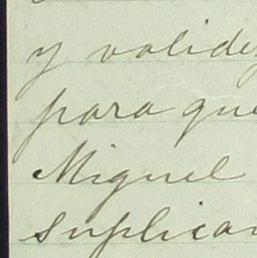 y valide
para que
Miguel
suplica